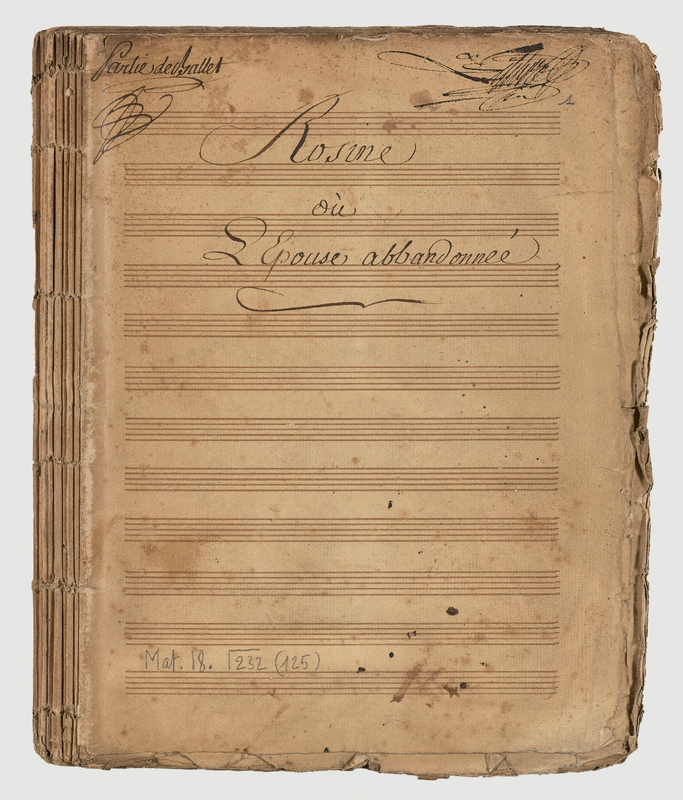 Partie de Ballet
1
Rosine
où
L'Epouse abbandonnéé
Mat. 18. 232 (125)